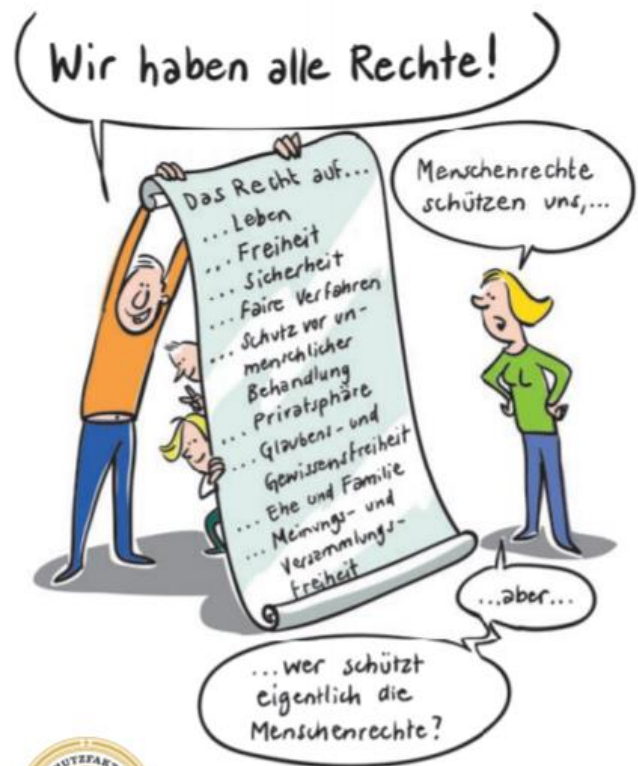 Wir haben alle Rechte!
Das Recht auf...
...Leben
...Freiheit
...Sicherheit
...Faire Verfahren
...Schutz vor un-
menschlicher
Behandlung
...Privatsphäre
...Glaubens- und
Gewissensfreiheit
...Ehe und Familie
...Meinungs- und
Versammlungs-
freiheit
Menschenrechte
schützen uns,...
...aber...
...wer schützt
eigentlich die
Menschenrechte?